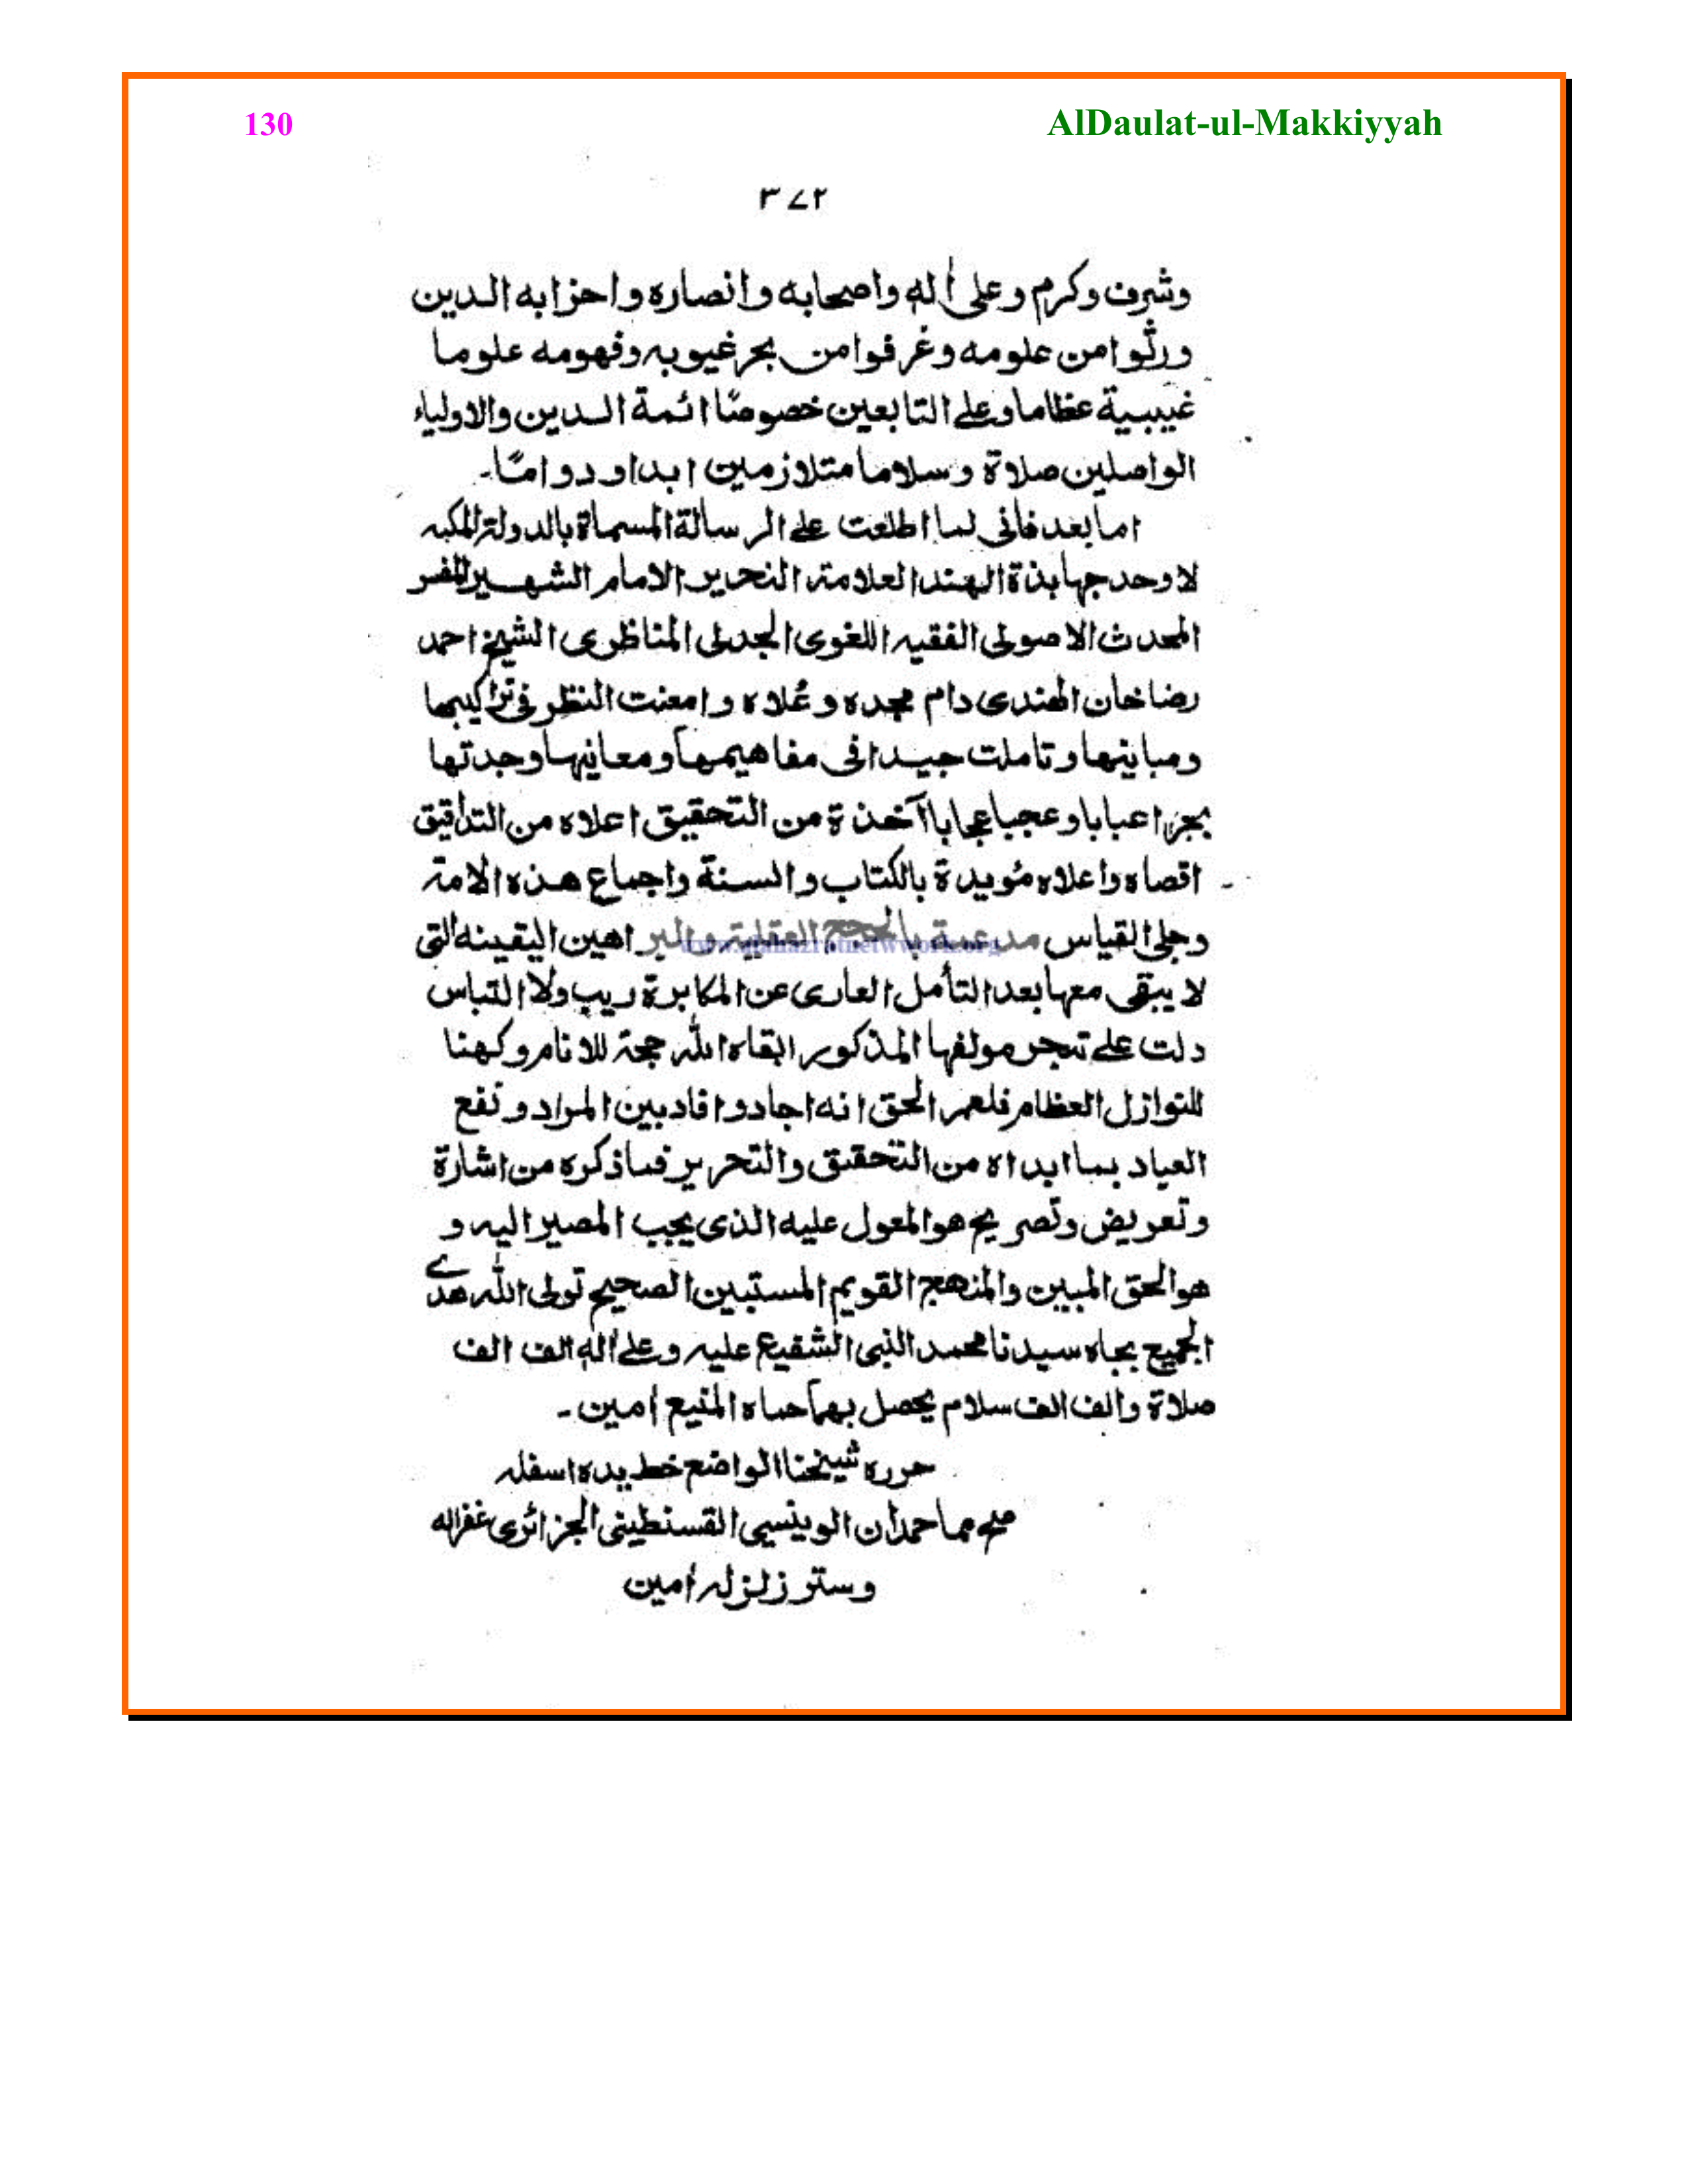 130
AlDaulat-ul-Makkiyyah
٣٧٢
وشرف وكرم وعلى اٰله واصحابه وانصاره واحزابه الدين
ورثوا من علومه وغرفوا من بحر غيوبه وفهومه علوما
غيبية عظاما وعلى التابعين خصوصًا ائمة الدين والاولياء
الواصلين صلاة وسلاما متلازمين ابدا ودوامًا۔
اما بعد فانى لما اطلعت على الرسالة المسماة بالدولة المكيه
لاوحد جهابذة الهند العلامة النحرير الامام الشهير المفسر
المحدث الاصولى الفقيه اللغوى الجدلى المناظرى الشيخ احمد
رضا خان الهندى دام مجده وعُلاه وامعنت النظر فى تراكيبها
ومبانيها وتاملت جيدا فى مفاهيمها ومعانيها وجدتها
بحرا عبابا وعجبا عجابا آخذة من التحقيق اعلاه من التدقيق
اقصاه واعلاه مؤيدة بالكتاب والسنة واجماع هذه الامة
وجلى القياس مدعمة بالحجج العقلية والبراهين اليقينه التى
www.alahazratnetwork.org
لا يبقى معها بعد التأمل العارى عن المكابرة ريب ولا التباس
دلت على تبحر مولفها المذكور ابقاه الله حجة للانام وكهنا
للنوازل العظام فلعمر الحق انه اجاد وافاد بين المراد ونفع
العباد بما ابداه من التحقيق والتحرير فما ذكره من اشارة
وتعريض وتصريح هو المعول عليه الذى يجب المصير اليه و
هو الحق المبين والمنهج القويم المستبين الصحيح تولى الله هدى
الجميع بجاه سيدنا محمد النبى الشفيع عليه وعلى اٰله الف الف
صلاة والف الف سلام يحصل بهما حماه المنيع اٰمين۔
حرره شيخنا الواضع خط يده اسفله
صح مما حمدان الونيسى القسنطينى الجزائرى غفر له
وستر زلزله اٰمين